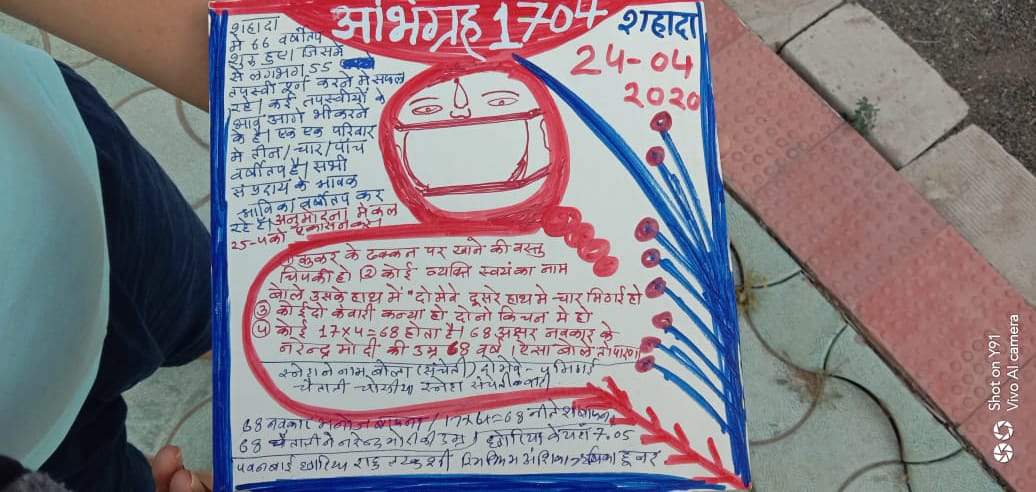 अभिग्रह 1704
शहादा
24-04
2020
शहादा
मे 66 वर्षीतप
शुरू हुए। जिसमें
से लगभग 55
तपस्वी पूर्ण करने मे सफल
रहे। कई तपस्वीयों के
भाव आगे भी करने
के है। एक एक परिवार
मे तीन/चार/पांच
वर्षीतप है। सभी
संप्रदाय के श्रावक
श्राविका वर्षीतप कर
रहे है। अनुमोदना मे कल
25-4 को एकासन करे।
कुकर के ढक्कन पर खाने की वस्तु
चिपकी हो ② कोई व्यक्ति स्वयं का नाम
बोले उसके हाथ में "दो मेवे दूसरे हाथ मे चार मिठाई हो
③ कोई दो कंवारी कन्या हो दोनो किचन मे हो
④ कोई 17x4=68 होता है। 68 अक्षर नवकार के
नरेन्द्र मोदी की उम्र 68 वर्ष। ऐसा बोले तो पारणा
स्नेहा ने नाम बोला (संचेती) दो मेवे - 4 मिठाई
चैताली चोरडीया स्नेहा संचेती
68 नवकार मनोज बाफना / 17x4=68 नीतेश बाफना
68 चैताली ने नरेन्द्र मोदी की उम्र / छोरिया के यहाँ 7.05
पवनबाई छोरिया
Shot on Y91
Vivo AI camera